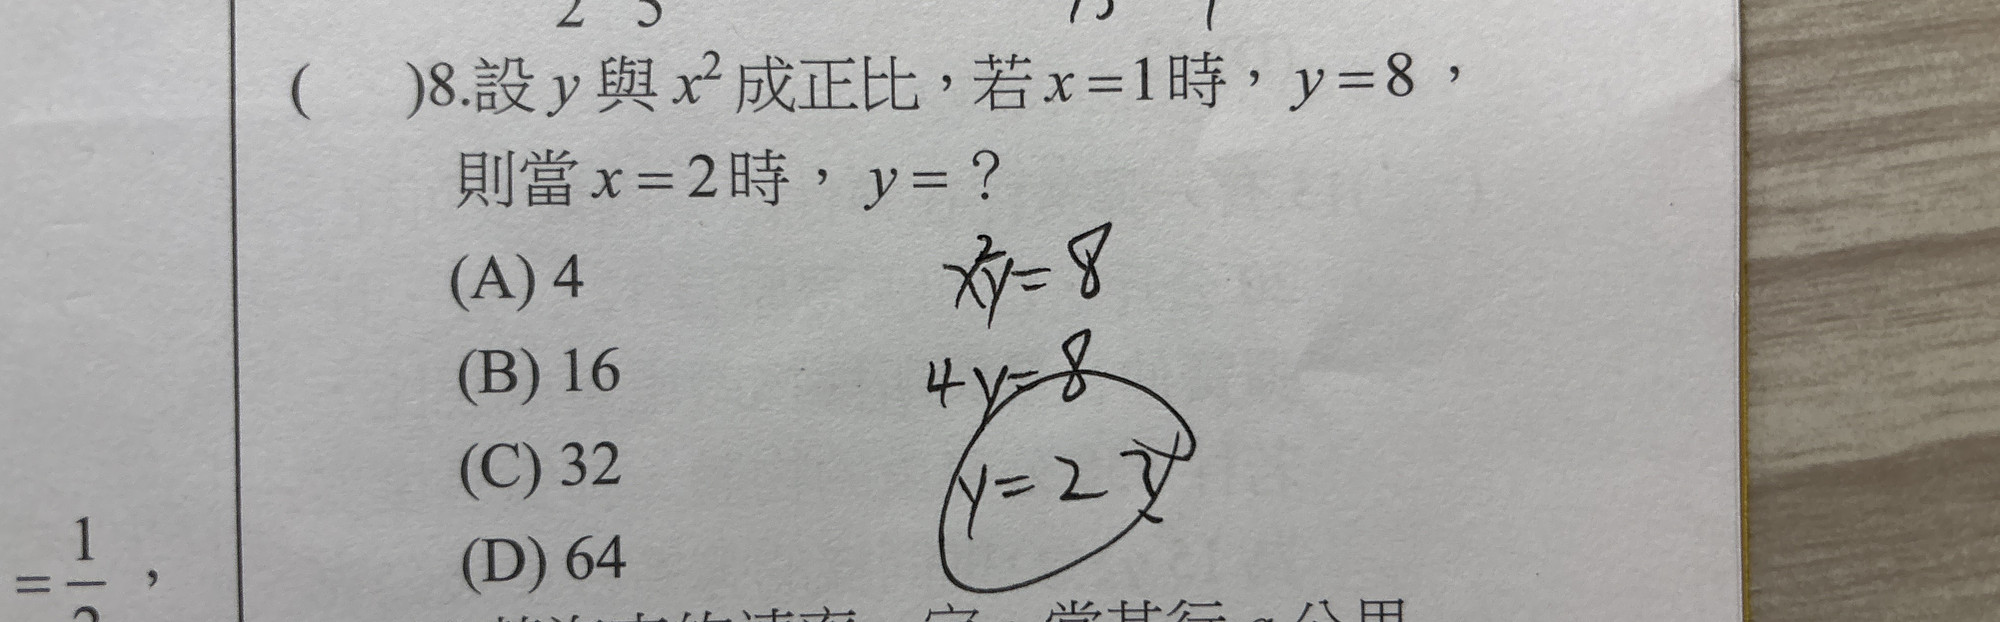 2 5
( )8.設 y 與 x² 成正比，若 x=1時，y=8，
則當 x=2時，y=？
(A) 4
x²y=8
(B) 16
4y=8
(C) 32
y=2
(D) 64
=1/2，